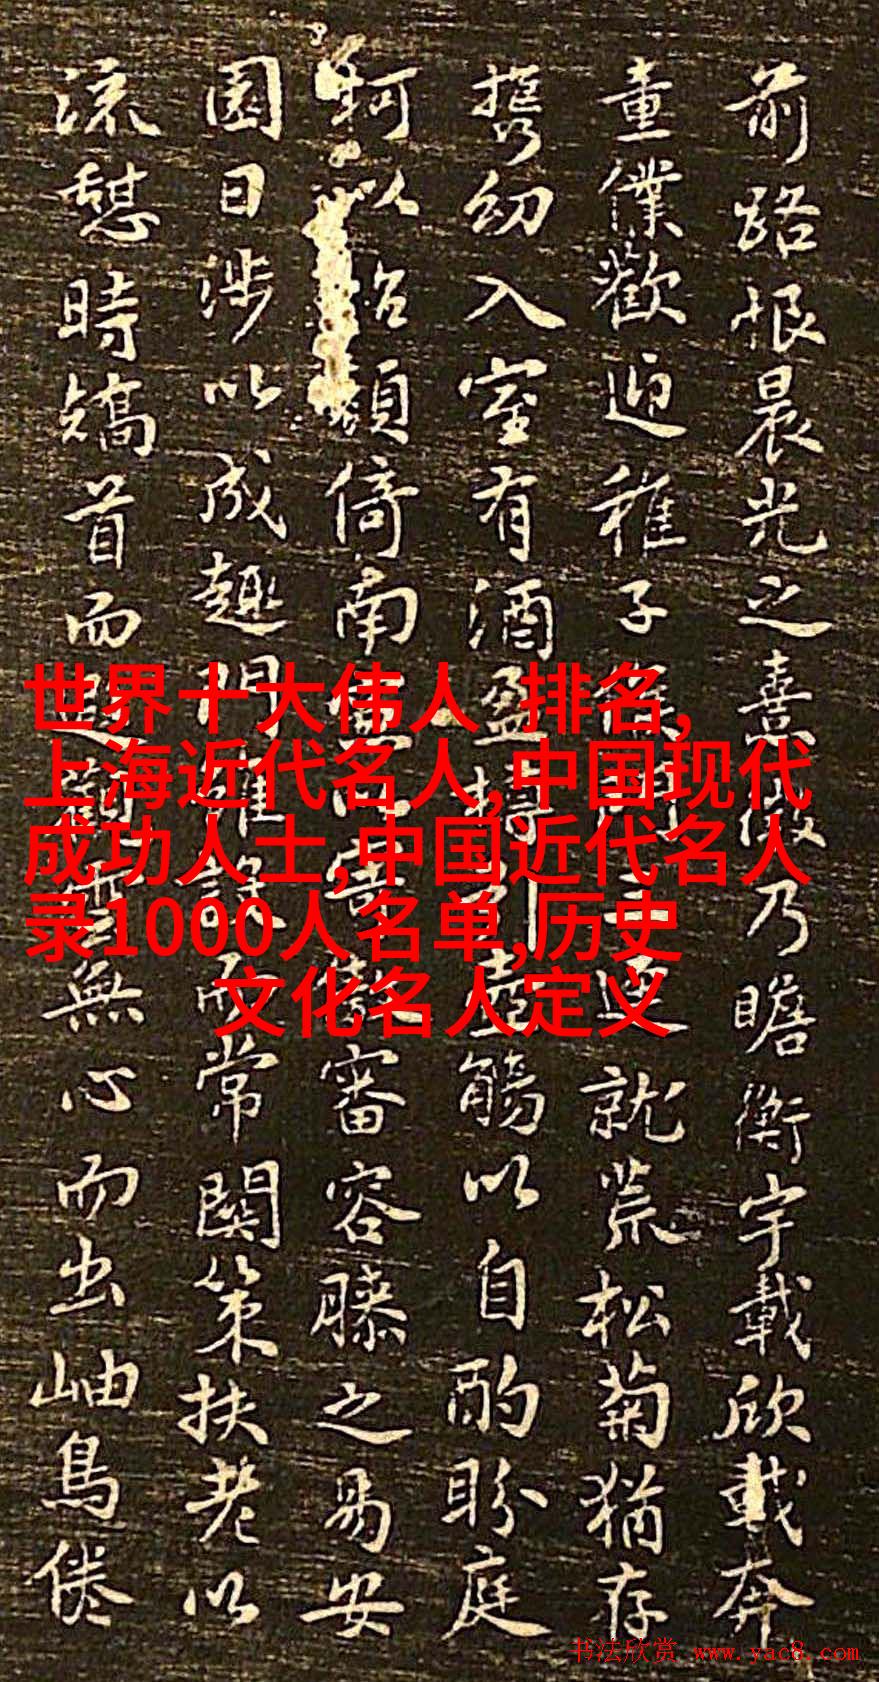 前路恨晨光之熹微乃瞻衡宇載欣載奔
童僕歡迎稚子候門三逕就荒松菊猶存
攜幼入室有酒盈樽引壺觴以自酌盼庭
柯以怡顏倚南窗以寄傲審容膝之易安
園日涉以成趣門雖設而常關策扶老以
流憩時矯首而遐觀雲無心而出岫鳥倦
世界十大伟人 排名,
上海近代名人,中国现代
成功人士,中国近代名人
录1000人名单,历史
文化名人定义
书法欣赏 www.yac8.com